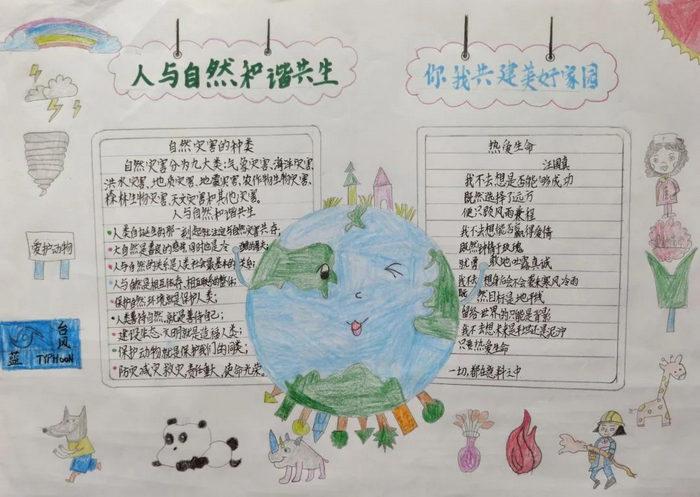 人与自然和谐共生
你我共建美好家园
自然灾害的种类
自然灾害分为九大类:气象灾害、海洋灾害、
洪水灾害、地质灾害、地震灾害、农作物生物灾害、
森林生物灾害、天文灾害和其他灾害
人与自然和谐共生
人类自诞生的那一刻起就注定与自然灾害共存;
大自然是善良的慈母,同时也是冷
人与自然的关系是人类社会最基本的关系;
人与自然是相互依存、相互联系的整体;
保护自然环境就是保护人类;
人类善待自然,就是善待自己;
建设生态文明就是造福人类;
保护动物就是保护我们的同类;
防灾减灾救灾责任重大,使命光荣。
热爱生命
汪国真
我不去想是否能够成功
既然选择了远方
便只顾风雨兼程
我不去想能否赢得爱情
既然钟情于玫瑰
就勇 敢地吐露真诚
我不去想身后会不会袭来寒风冷雨
既 然目标是地平线
留给世界的只能是背影
我不去想未来是平坦还是泥泞
只要热爱生命
一切,都在意料之中
爱护动物
台风
蓝
TYPHOON